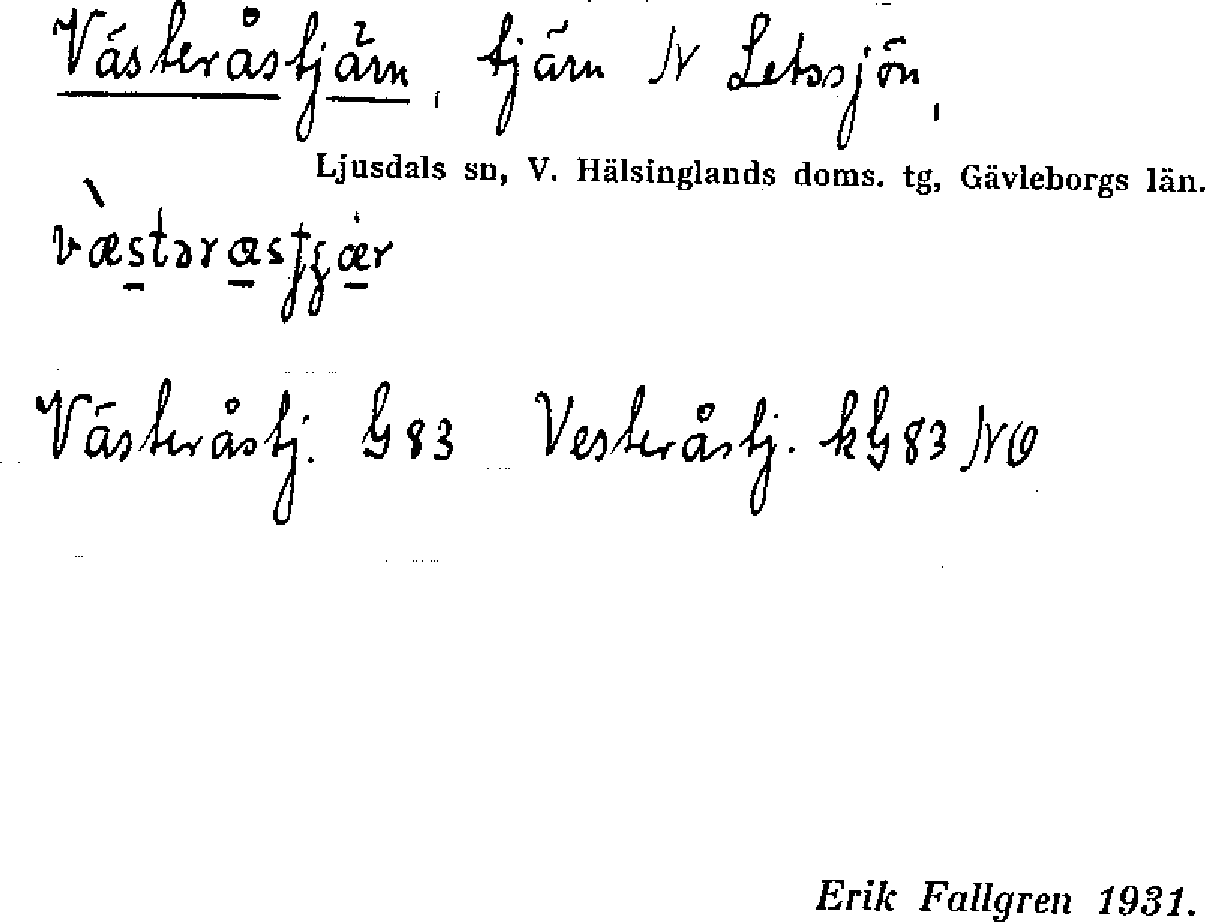 Västeråstjärn, tjärn N Letssjön,
Ljusdals sn, V. Hälsinglands doms. tg, Gävleborgs län.
Västeråstj. G 83 Vesteråstj. kG 83 NO
Erik Fallgren 1931.